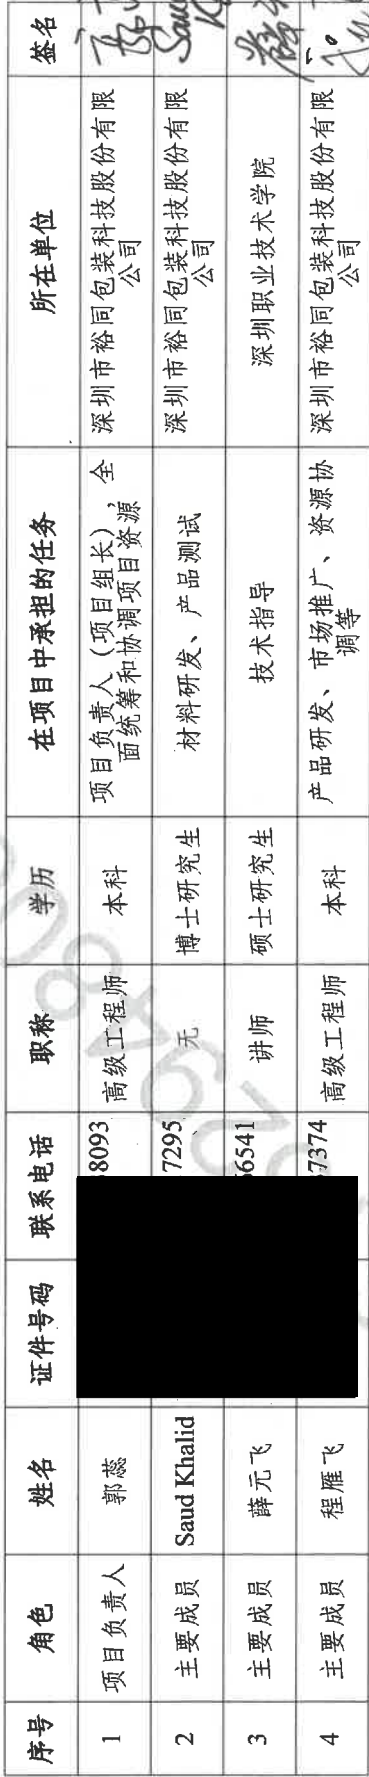 序号 角色 姓名 证件号码 联系电话 职称 学历 在项目中承担的任务 所在单位 签名
1 项目负责人 郭蕊 8093 高级工程师 本科 项目负责人（项目组长），全
面统筹和协调项目资源 深圳市裕同包装科技股份有限
公司
2 主要成员 Saud Khalid 7295 无 博士研究生 材料研发、产品测试 深圳市裕同包装科技股份有限
公司 Saud
3 主要成员 薛元飞 6541 讲师 硕士研究生 技术指导 深圳职业技术学院
4 主要成员 程雁飞 7374 高级工程师 本科 产品研发、市场推广、资源协
调等 深圳市裕同包装科技股份有限
公司